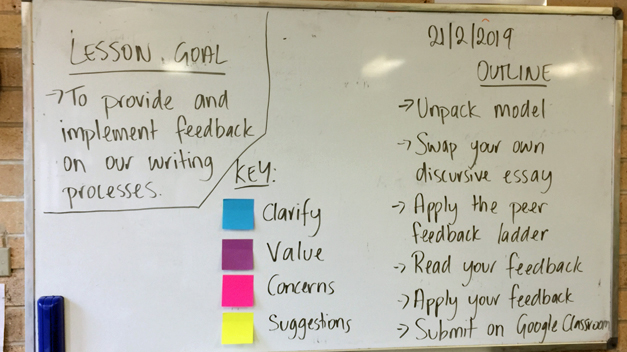 LESSON GOAL
→ To provide and
implement feedback
on our writing
processes.
KEY:
Clarify
Value
Concerns
Suggestions
21/2/2019
OUTLINE
→ Unpack model
→ Swap your own
discursive essay
→ Apply the peer
feedback ladder
→ Read your feedback
→ Apply your feedback
→ Submit on Google Classroom